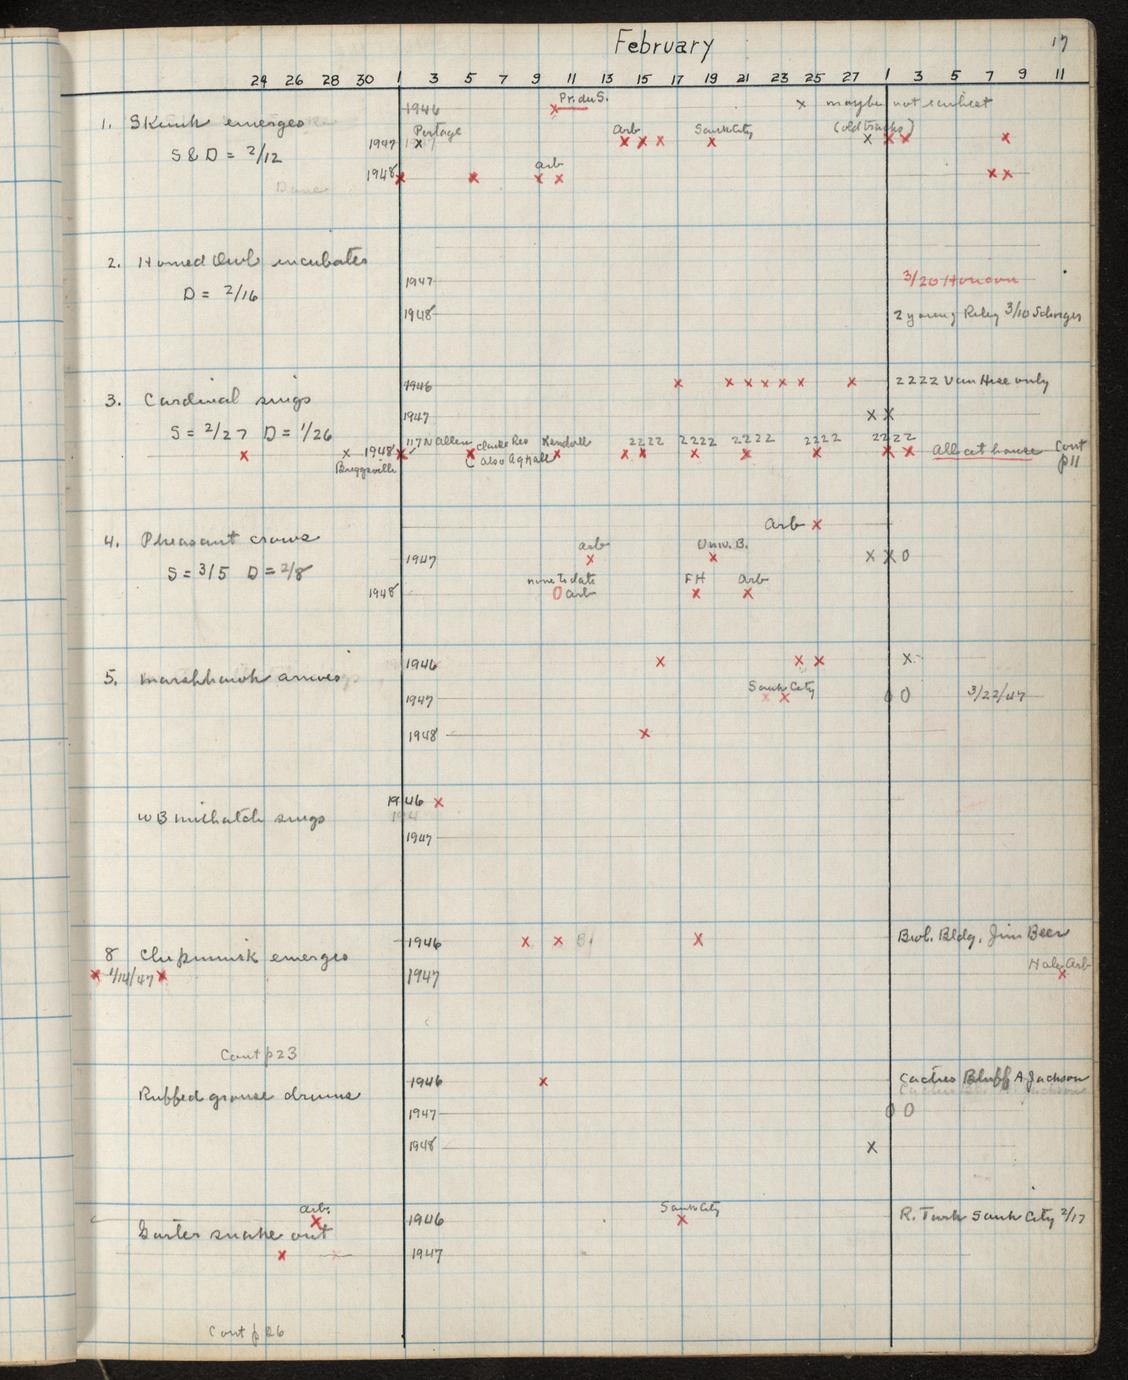 February 17
24 26 28 30 1 3 5 7 9 11 13 15 17 19 21 23 25 27 1 3 5 7 9 11
1946 x Pr. du S. x maybe not earliest
1. Skunk emerges
Portage Arb Sauk City (old tracks)
1947 x x x x x x x x x
S & D = 2/12
Arb
1948 x x x x x x
Dane
2. Horned Owl incubates
1947 3/20
D = 2/16
1948 2 young Riley 3/10
3. Cardinal sings
1946 x x x x x x x 2222 Van Hise only
1947 x x
S = 2/27 D = 1/26
117 N Allen Clarke Res Kendall 2222 2222 2222 2222 2222
x x 1948 x x x x x x x x x x All at house Cont p11
Briggsville also Ag Hall
4. Pheasant crows
Arb x
Arb Univ. B.
1947 x x x x 0
S = 3/5 D = 2/8
none to date FH Arb
1948 0 arb x x
5. Marshhawk arrives
1946 x x x x
Sauk City
1947 x x 0 0 3/22/47
1948 x
WB nuthatch sings
1946 x
1947
8 Chipmunk emerges
1946 x x x Biol. Bldg. Jim Beer
x 1/14/47 x 1947 x Arb
Cont p23
Ruffed grouse drums
1946 x Cactus Bluff A Jackson
1947 0 0
1948 x
Garter snake out
Arb. x 1946 Sauk City x R. Turk Sauk City 2/17
x x 1947
Cont p 26